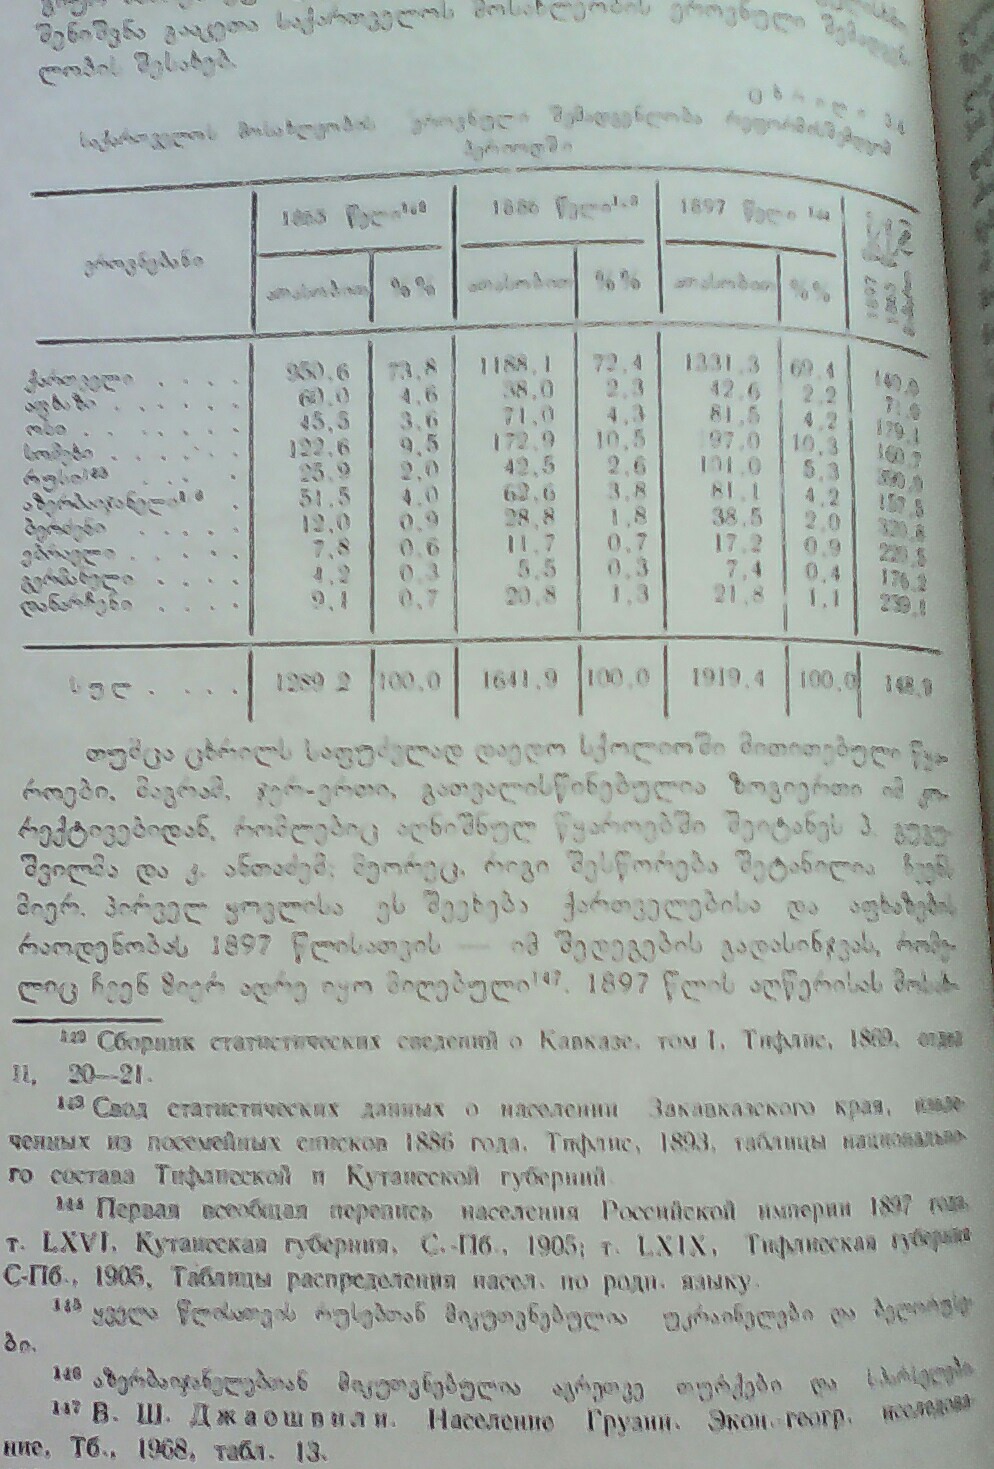 შენიშვნა გააკეთა საქართველოს მოსახლეობის ეროვნული შემადგენ-
ლობის შესახებ.
ცხრილი 34
საქართველოს მოსახლეობის ეროვნული შემადგენლობა რეფორმისშემდეგ
პერიოდში
ეროვნებანი 1865 წელი¹⁴² 1886 წელი¹⁴³ 1897 წელი ¹⁴⁴
ათასობით %% ათასობით %% ათასობით %% 1897 1865
ქართველი . . . . 950,6 73,8 1188,1 72,4 1331,3 69,4 140,0
აფხაზი . . . . . . 60,0 4,6 38,0 2,3 42,6 2,2 71,0
ოსი . . . . . . . 45,5 3,6 71,0 4,3 81,5 4,2 179,1
სომეხი . . . . . . 122,6 9,5 172,9 10,5 197,0 10,3 160,7
რუსი¹⁴⁵ . . . 25,9 2,0 42,5 2,6 101,0 5,3 390,0
აზერბაიჯანელი¹⁴⁶ . 51,5 4,0 62,6 3,8 81,1 4,2 157,5
ბერძენი . . . . . 12,0 0,9 28,8 1,8 38,5 2,0 320,8
ებრაელი . . . . . 7,8 0,6 11,7 0,7 17,2 0,9 220,5
გერმანელი . . . . 4,2 0,3 5,5 0,3 7,4 0,4 176,2
დანარჩენი . . . . 9,1 0,7 20,8 1,3 21,8 1,1 239,1
სულ . . . . 1289,2 100,0 1641,9 100,0 1919,4 100,0 148,9
თუმცა ცხრილს საფუძვლად დაედო სქოლიოში მითითებული წყა-
როები, მაგრამ, ჯერ-ერთი, გათვალისწინებულია ზოგიერთი იმ კო-
რექტივებიდან, რომლებიც აღნიშნულ წყაროებში შეიტანეს პ. გუგუ-
შვილმა და კ. ანთაძემ; მეორეც, რიგი შესწორება შეტანილია ჩვენს
მიერ. პირველ ყოვლისა ეს შეეხება ქართველებისა და აფხაზების
რაოდენობას 1897 წლისათვის — იმ შედეგების გადასინჯვას, რომე-
ლიც ჩვენ მიერ ადრე იყო მიღებული¹⁴⁷. 1897 წლის აღწერისას მოსახ-
¹⁴² Сборник статистических сведений о Кавказе, том I, Тифлис, 1869, отдел
II, 20—21.
¹⁴³ Свод статистических данных о населении Закавказского края, извле-
ченных из посемейных списков 1886 года, Тифлис, 1893, таблицы национально-
го состава Тифлисской и Кутаисской губерний.
¹⁴⁴ Первая всеобщая перепись населения Российской империи 1897 года,
т. LXVI, Кутаисская губерния, С.-Пб., 1905; т. LXIX, Тифлисская губерния
С-Пб., 1905, Таблицы распределения насел. по родн. языку.
¹⁴⁵ ყველა წლისათვის რუსებთან მიკუთვნებულია უკრაინელები და ბელორუსე-
ბი.
¹⁴⁶ აზერბაიჯანელებთან მიკუთვნებულია აგრეთვე თურქები და სპარსელები
¹⁴⁷ В. Ш. Джаошвили. Население Грузии. Экон.-геогр. исследова-
ние, Тб., 1968, табл. 13.